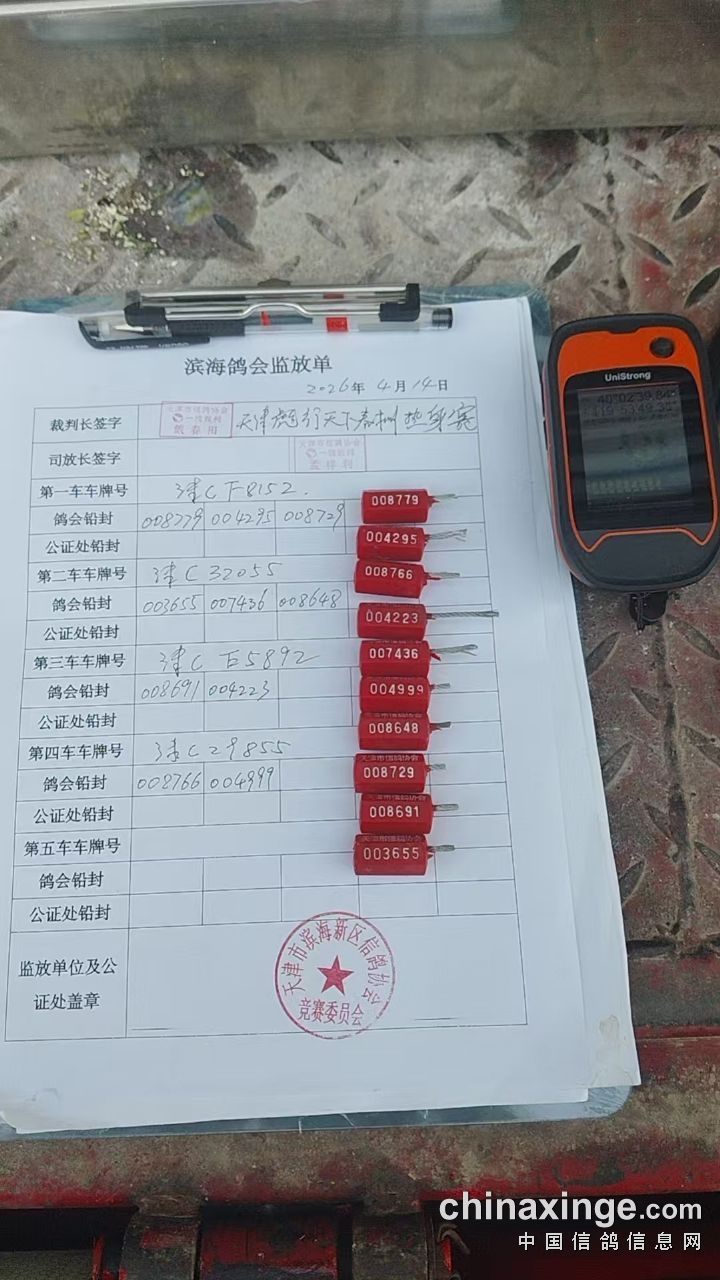 滨海鸽会监放单
2026年4月14日
裁判长签字
天津市信鸽协会
一级裁判
司放长签字
天津市信鸽协会
一级裁判
第一车车牌号 津C F8152.
鸽会铅封 008779 004295 008729
公证处铅封
第二车车牌号 津C 32055
鸽会铅封 003655 007436 008648
公证处铅封
第三车车牌号 津C E5892
鸽会铅封 008691 004223
公证处铅封
第四车车牌号 津C 29855
鸽会铅封 008766 004999
公证处铅封
第五车车牌号
鸽会铅封
公证处铅封
监放单位及公
证处盖章
天津市滨海新区信鸽协会
竞赛委员会
008779
004295
008766
004223
007436
004999
008648
008729
008691
003655
UniStrong
40°02'39.84"
119°53'49.35"
chinaxinge.com
中国信鸽信息网